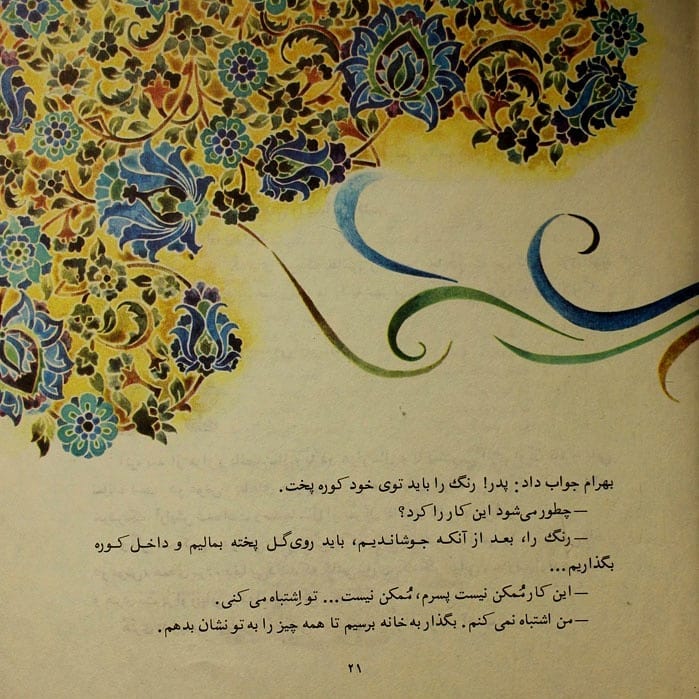 بهرام جواب داد: پدر! رنگ را باید توی خود کوره پخت.
— چطور می‌شود این کار را کرد؟
— رنگ را، بعد از آنکه جوشاندیم، باید روی گل پخته بمالیم و داخل کوره
بگذاریم...
— این کار مُمکن نیست پسرم، مُمکن نیست... تو اِشتباه می کنی.
— من اشتباه نمی کنم. بگذار به خانه برسیم تا همه چیز را به تو نشان بدهم.
۲۱